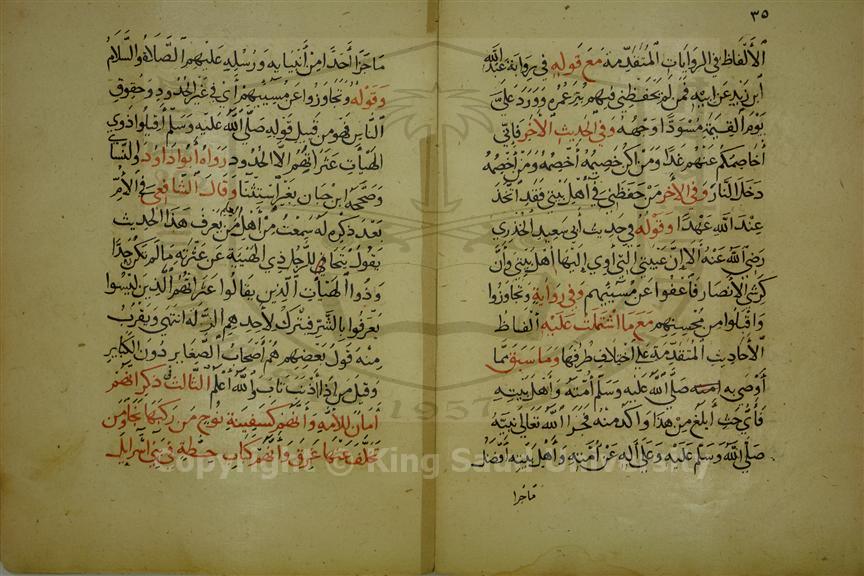 ٣٥
الألفاظ في الروايات المتقدمة مع قوله في رواية عبد الله
ابن زيد عن ابيه فمن لم يحفظني فيهم بتر عمره وورد علي
يوم القيمة مسودا وجهه وفي الحديث الآخر فاني
أخاصمكم عنهم غدا ومن اكن خصيمه أخصمه ومن أخصمه
دخل النار وفي الآخر من حفظني في أهل بيتي فقد اتخذ
عند الله عهدا وقوله في حديث أبي سعيد الخدري
رضي الله عنه ألا إن عيبتي التي آوي إليها أهل بيتي وأن
كرشي الأنصار فاعفوا عن مسيئهم وفي رواية وتجاوزوا
واقبلوا من محسنهم مع ما اشتملت عليه ألفاظ
الأحاديث المتقدمة على اختلاف طرفها وما سبق مما
أوصى به امته صلى الله عليه وسلم أمته وأهل بيته
فأي حث أبلغ من هذا وآكد منه فجزا الله تعالى نبيه
صلى الله وسلم عليه وعلى آله عن أمته وأهل بيته أفضل
ما جزا
ما جزا أحدا من أنبيايه ورسله عليهم الصلاة والسلام
وقوله وتجاوزوا عن مسيئهم أي في غير الحدود وحقوق
الناس فهو من قبيل قوله صلى الله عليه وسلم أقيلوا ذوي
الهيآت عثراتهم الا الحدود رواه أبو داود والنسائي
وصححه ابن حبان بغير استثنا وقال الشافعي في الأم
بعد ذكره له سمعت من أهل العلم من يعرف هذا الحديث
يقول يتجافى للرجل ذي الهيئة عن عثرته ما لم تكن حدا
وذووا الهيآت الذين يقالوا عثراتهم الذين ليسوا
يعرفوا بالشر فيترك لأحدهم الزلة انتهى ويقرب
منه قول بعضهم هم أصحاب الصغاير دون الكباير
وقيل من إذا أذنب تاب والله أعلم الثالث في ذكر انهم
أمان للأمه وانهم كسفينة نوح من ركبها نجا ومن
تخلف عنها غرق وأنهم كباب حطة في بني اسرائيل
1957
Copyright © King Saud University